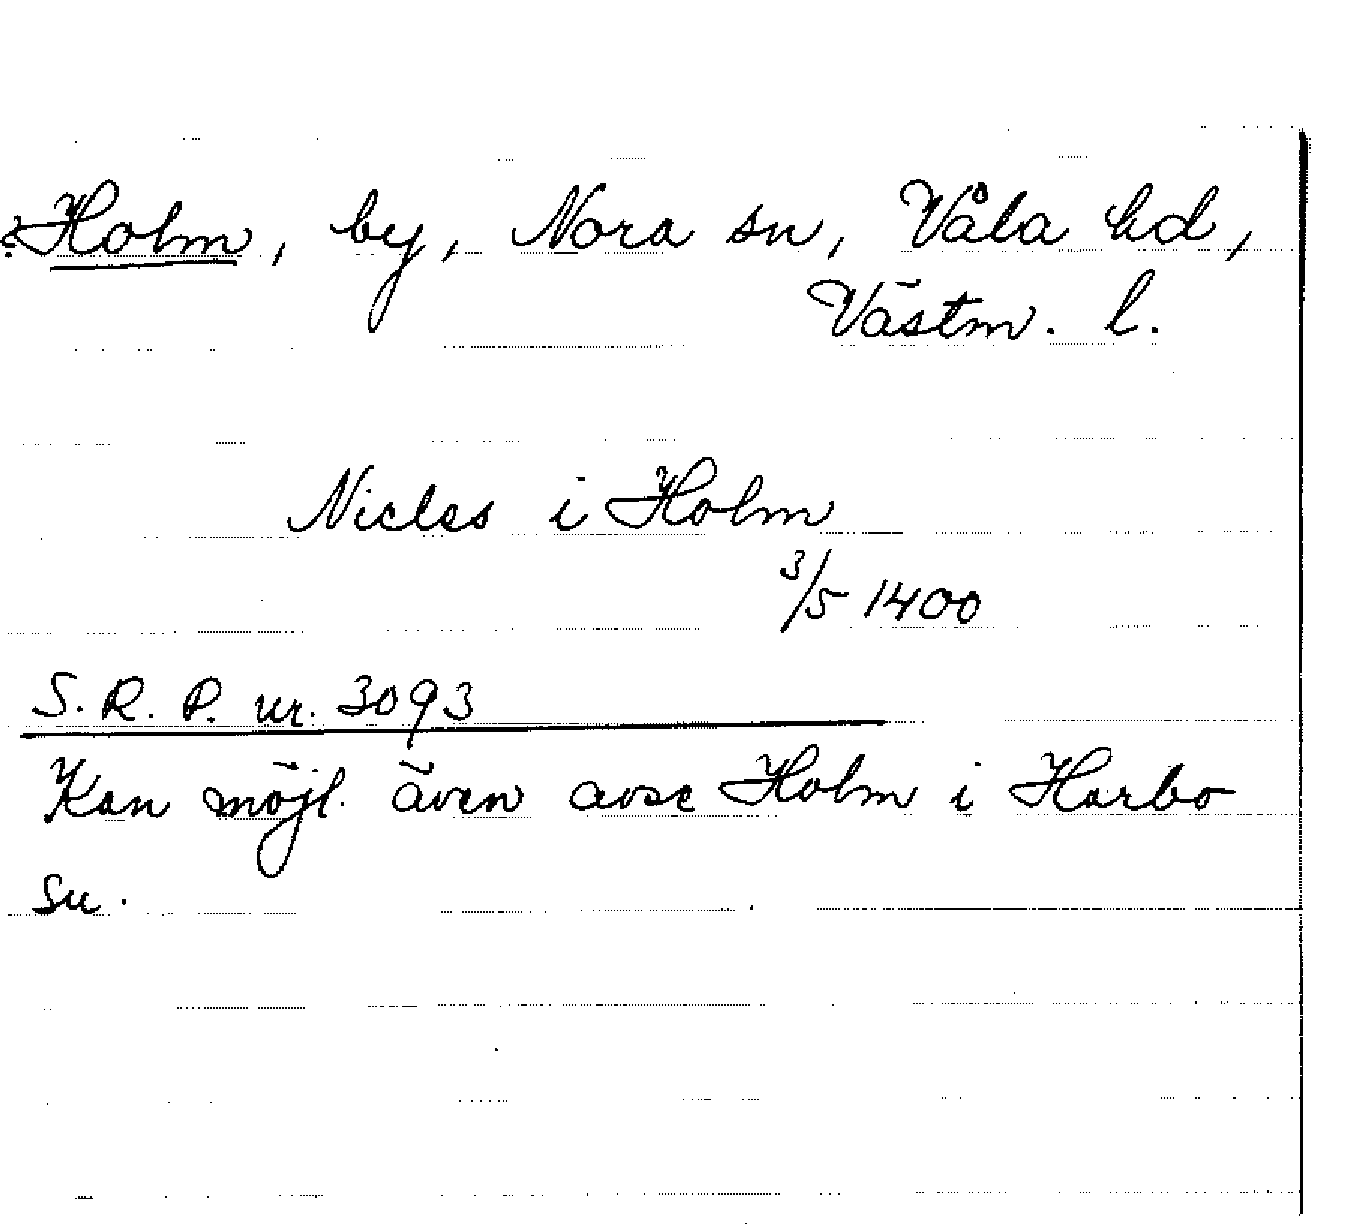 ?Holm, by, Nora sn, Våla hd,
Västm. l.
Nicles i Holm
3/5 1400
S. R. P. nr. 3093
Kan möjl. även avse Holm i Harbo
sn.